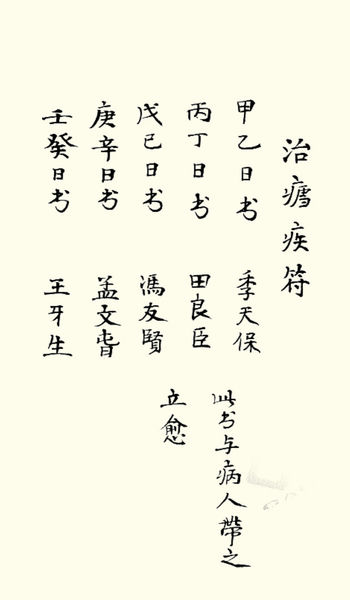 治瘧疾符
甲乙日书 季天保
丙丁日书 田良臣
戊己日书 馮友賢
庚辛日书 盖文
壬癸日书 王牙生
此书与病人帶之
立愈